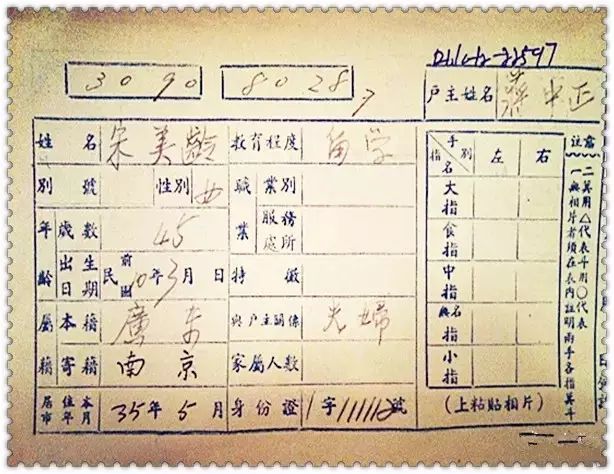 3090 8028 7
户主姓名 蔣中正
姓名 宋美齡 教育程度 留学
別號 性別 女 職業 業別
年齡 歲數 45 服務處所
出生日期 民前國 10年3月 日 特徵
屬籍 本籍 廣东 與戶主關係 夫婦
寄籍 南京 家屬人數
居住本市年月 35年5月 身份證 1字111112號
手別 指名 左 右
大指
食指
中指
無名指
小指
(上粘貼相片)
二箕用△代表斗用〇代表
相片者須在表內証明兩手各指箕斗